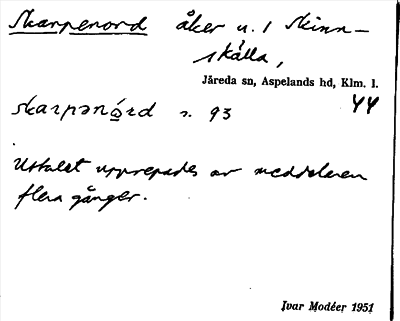 Skarpenord åker u. 1 Skinn-
skälla,
Järeda sn, Aspelands hd, Klm. l.
skarpənó̲rd s. 93 44
Uttalet upprepades av meddelaren
flera gånger.
Ivar Modéer 1951